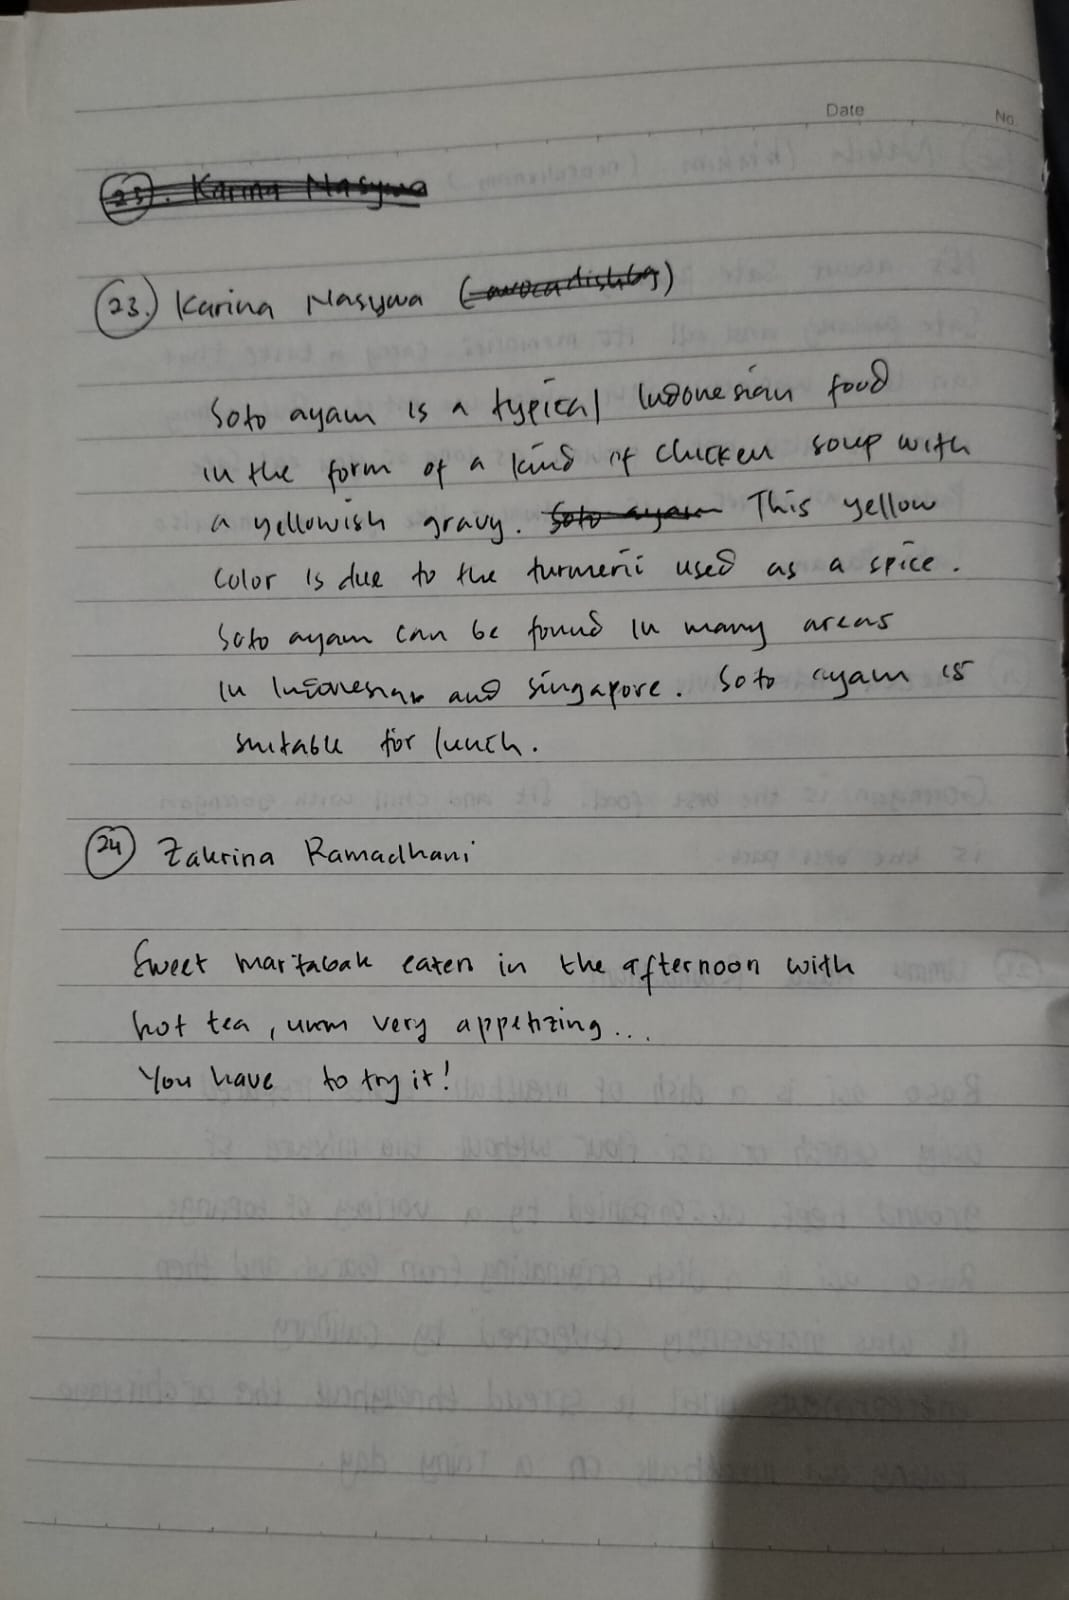 Date
No.
23. Karina Nasywa
23. Karina Nasywa ( )
Soto ayam is a typical Indonesian food
in the form of a kind of chicken soup with
a yellowish gravy. Soto ayam This yellow
color is due to the turmeric used as a spice.
Soto ayam can be found in many areas
in Indonesian and singapore. Soto ayam is
suitable for lunch.
24 Zakrina Ramadhani
Sweet martabak eaten in the afternoon with
hot tea, umm very appetizing...
You have to try it!